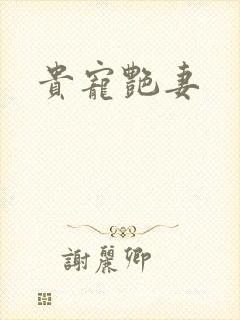 貴寵艷妻
謝麗卿